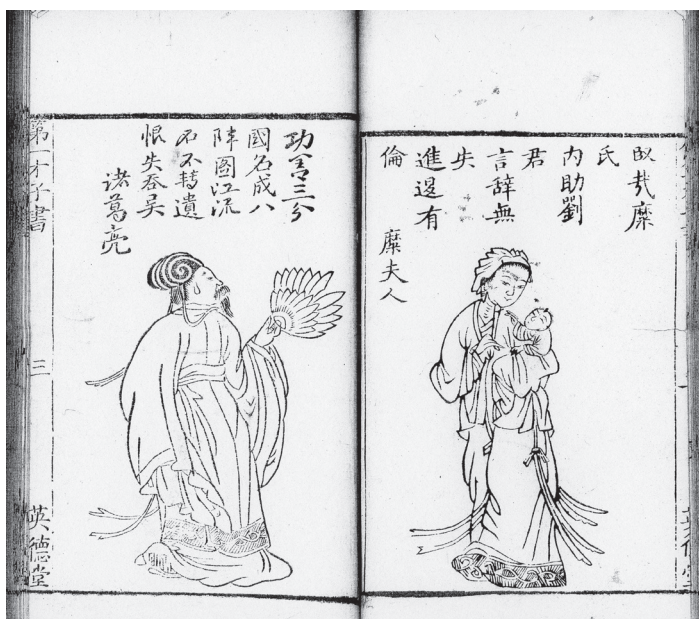 臤哉糜
氏
內助劉
君
言辭無
失
進退有
倫
糜夫人
功盖三分
國名成八
陣圖江流
石不轉遺
恨失吞吴
诸葛亮
第才子書
三
英德堂